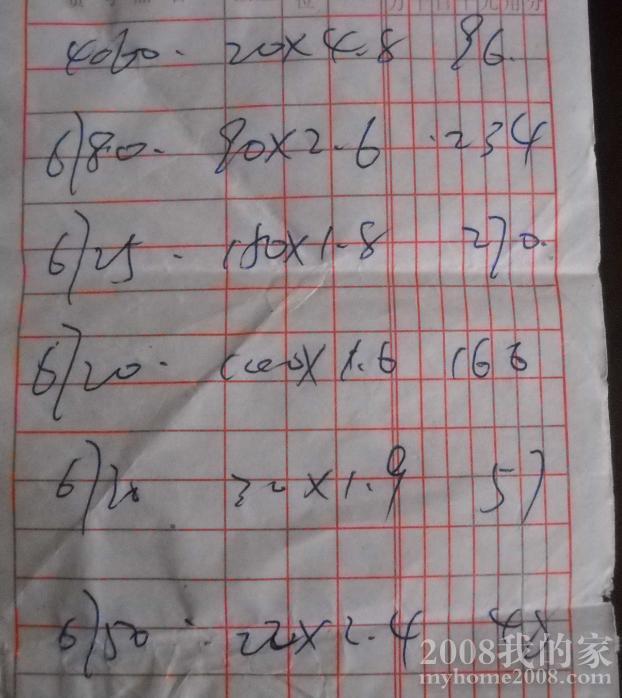 4060. 20×4.8 96.
6)80. 90×2.6 234
6)25. 150×1.8 270.
6)20. 100× 1.6 160
6) 30×1.9 57
6)50 22×2.4
2008我的家
myhome2008.com